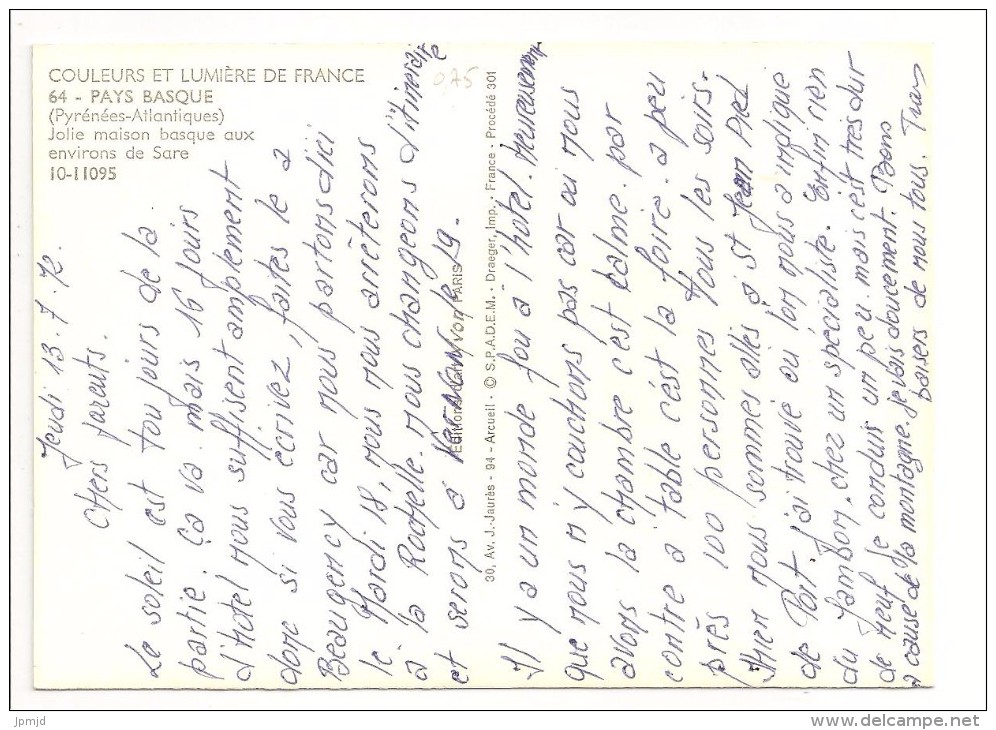 COULEURS ET LUMIÈRE DE FRANCE
64 - PAYS BASQUE
(Pyrénées-Atlantiques)
Jolie maison basque aux
environs de Sare
10-11095
0,75
Jeudi 13.7.72.
Chers parents.
Le soleil est toujours de la
partie. Ça va. mais 16 jours
d'hotel nous suffisent amplement
donc si vous écrivez, faites le a
Beaugency car nous partons d'ici
le Mardi 18, nous nous arrêterons
a la Rochelle. nous changeons d'itineraire
et serons a le 19.
Editions Yvon PARIS
30, Av. J. Jaurès - 94 - Arcueil - © S.P.A.D.E.M. - Draeger, Imp. - France - Procédé 301
Il y a un monde fou a l'hotel. Heureusement
que nous n'y couchons pas car ou nous
avons la chambre c'est calme. par
contre a table c'est la foire. a peu
près 100 personnes tous les soirs.
Hier nous sommes allés a St Jean Pied
de Port. j'ai trouvé ou l'on nous a indiqué
du Jambon, chez un spécialiste. Enfin rien
de neuf. Je conduis un peu. mais c'est très dur
a cause de la montagne. je vais doucement. Bons
baisers de nous tous.
jpmjd
www.delcampe.net